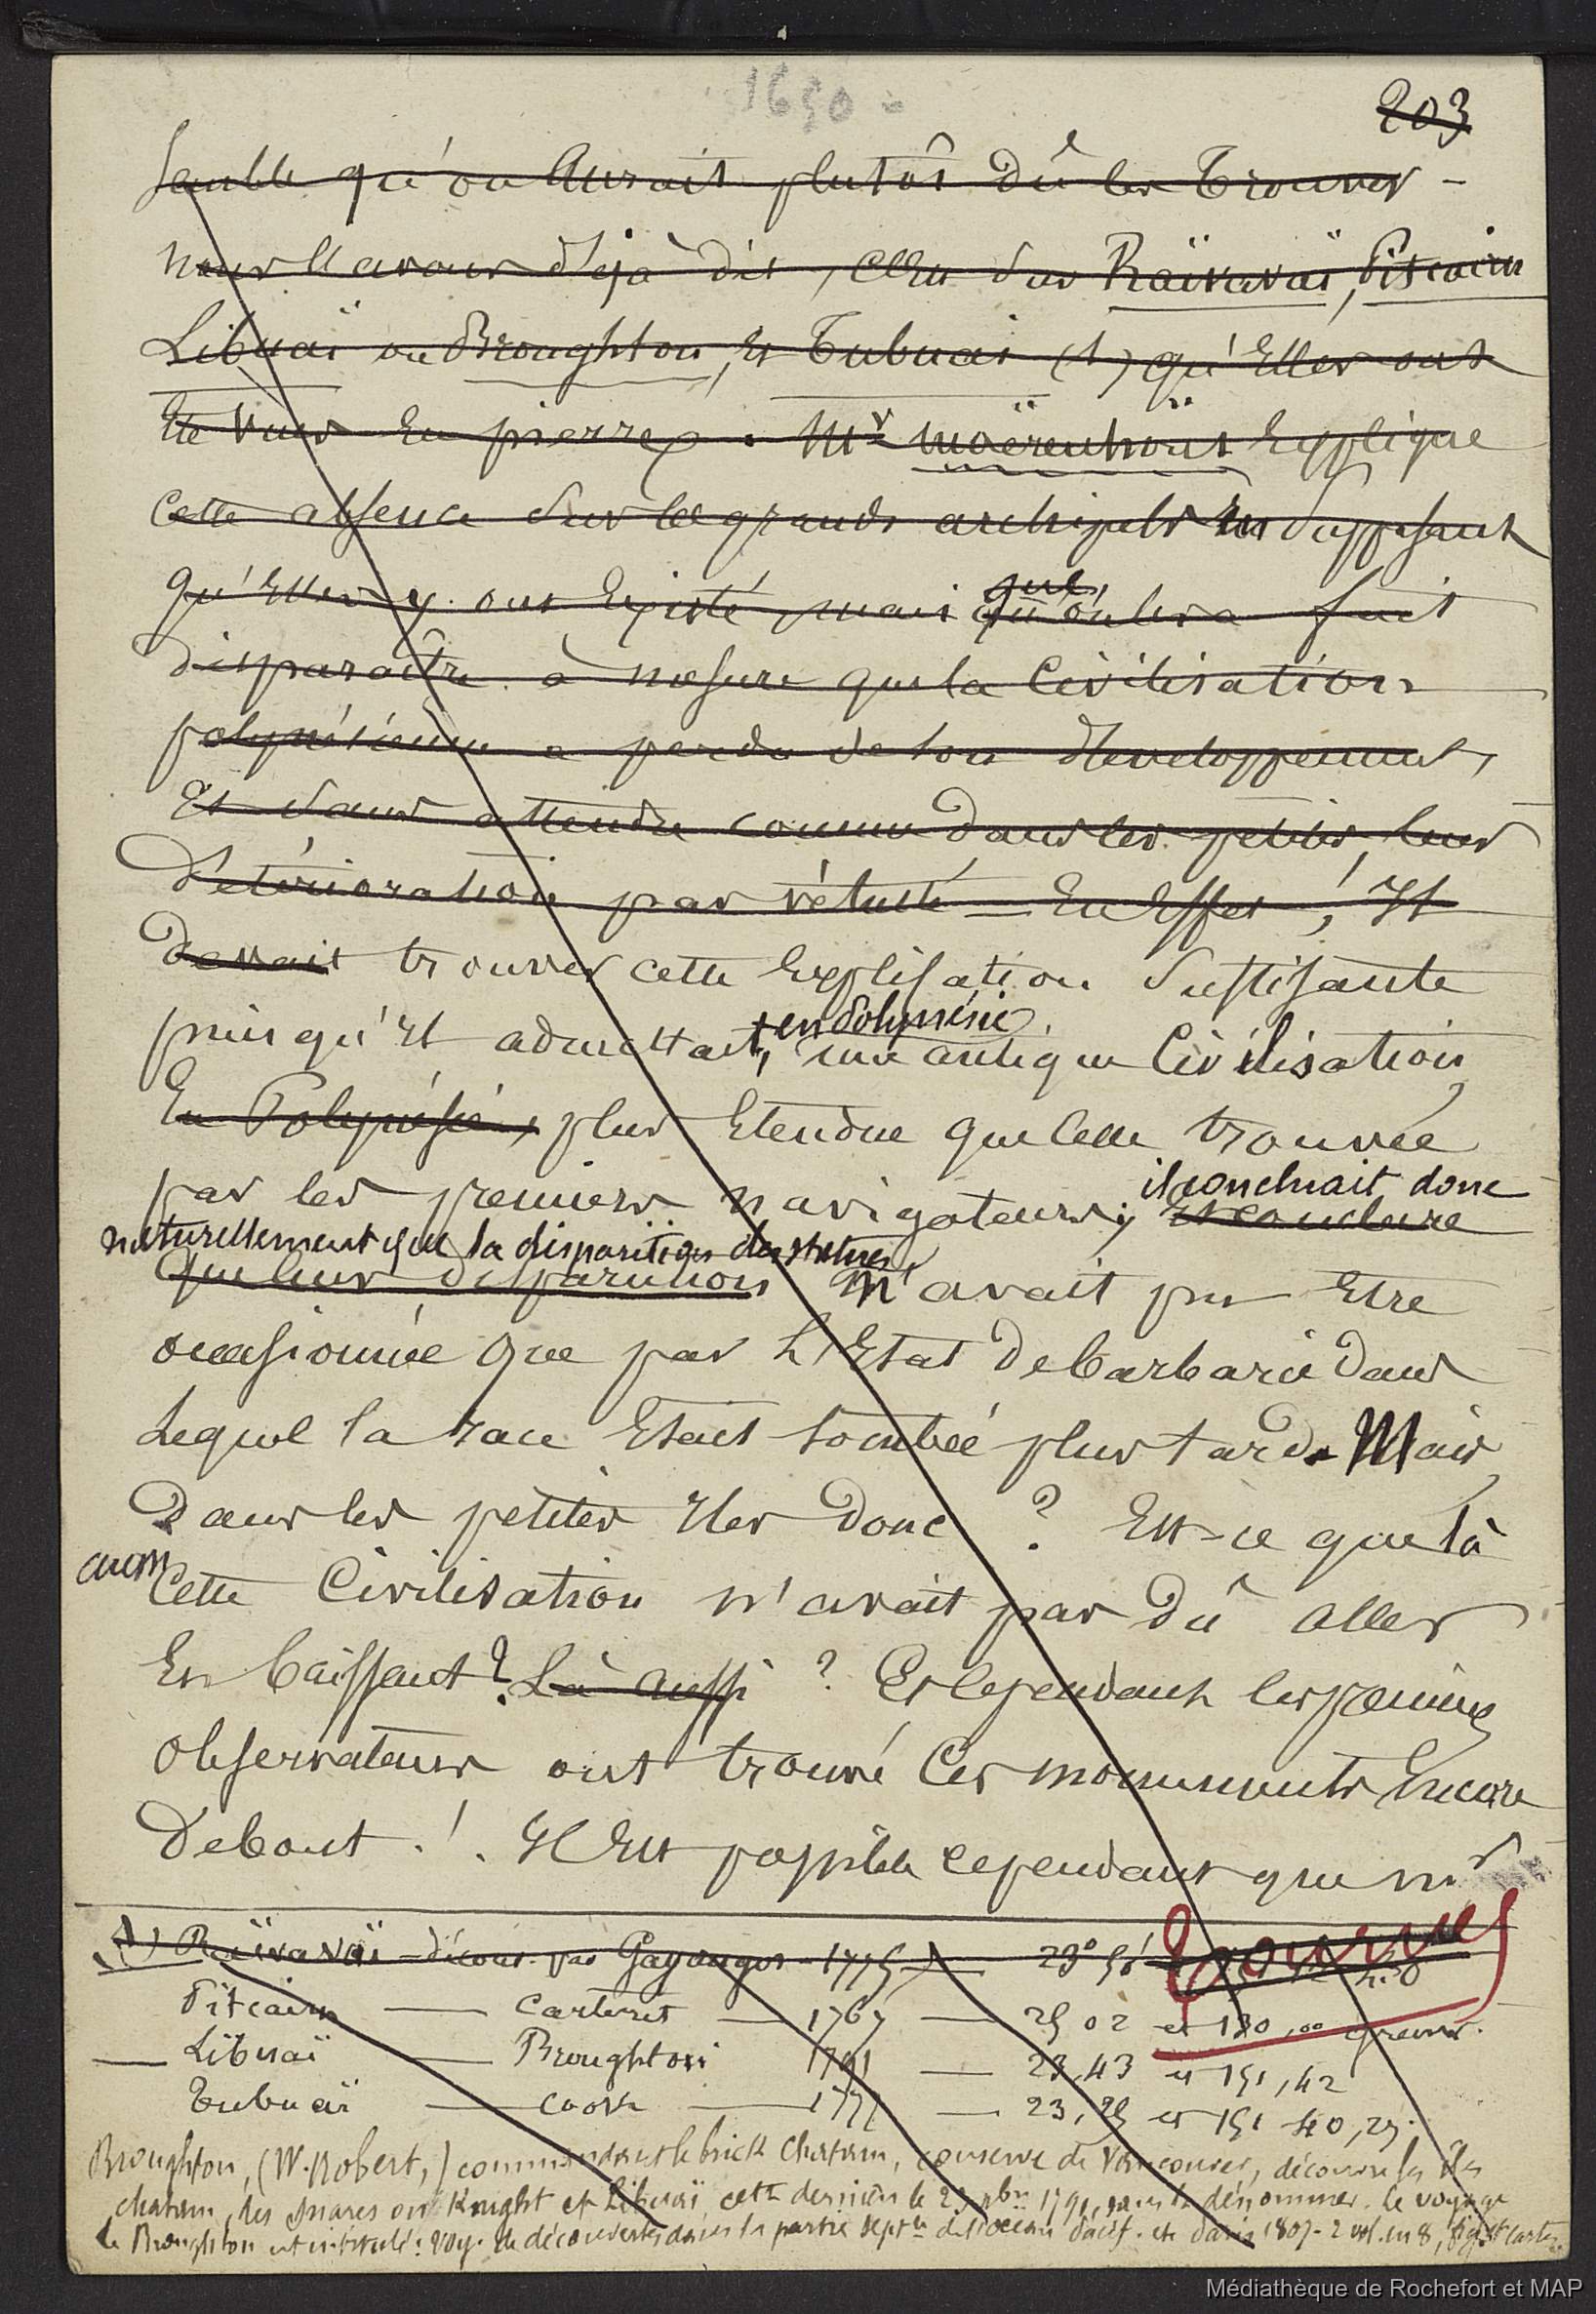 1650
203
semble qu'on aurait plutôt dû les trouver -
nous l'avons déjà dit, c'est sur Raïvavaï, Pitcairn
Libuaï ou Broughton, et Tubuai (1) qu'elles ont
été vues en pierres. Mr Moërenhout explique
cette absence sur les grands archipels en supposant
qu'elles y ont existé, mais qu'on les a fait
que
disparaître à mesure que la civilisation
polynésienne a perdu de son développement,
et sans attendre comme dans les petites, leur
détérioration par vétusté — En effet, ! Il
devait trouver cette explication suffisante
puisqu'il admettait, en Polynésie, une antique civilisation
en Polynésie, plus étendue que celle trouvée
par les premiers navigateurs; et conclure
il concluait donc
naturellement que la disparition des statues
que leur disparution n'avait pu être
occasionnée que par l'Etat de barbarie dans
lequel la race était tombée plus tard. Mais
dans les petites îles donc ? Est-ce que là
aussi
cette civilisation n'avait pas dû aller
en baissant ? Là aussi ? Et cependant les premiers
observateurs ont trouvé ces monuments encore
debout . ! . Il est possible cependant que Mr
(1) Raïvavaï - découv. par Gayangos - 1775 — 23°
Pitcairn — Carteret — 1767 — 25 02 et 130,00
— Libuaï — Broughton 1791 — 23,43 et 151,42
Tubuaï — Cook — 1777 — 23,25 et 151
Broughton, (W. Robert,) commandant le brick Chatam, conserve de Vancouver, découvre les îles
chatam, les snares ou Knight et Libuaï, cette dernière le 23 1791, sans la dénommer. le voyage
de Broughton est intitulé : Voy. de découvertes dans la partie septle de l'océan Pacif. etc Paris 1807 - 2 vol. in 8, fig. et cartes